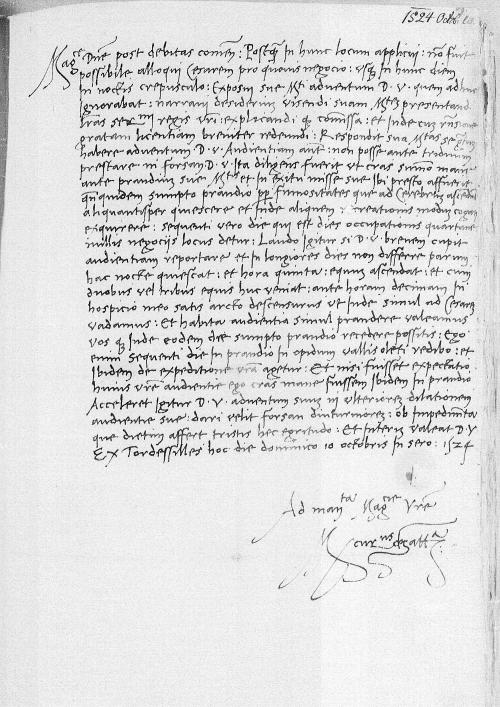 1524 Octo
Mag.ce Dñe post debitas comeñ: Postq̃ in hunc locum applicui: nõ fuit
possibile alloqui Cesarem pro quovis negocio: usq̃ in hunc diem
in noctis crepusculo: Exposui sue M.ti adventum D. V. quem adhuc
Ignorabat: narravi desiderium visendi suam M.tẽ presentandi
l̃ras ser.mi regis v̄ri: explicandi q̃ comissa: et inde cum
gratam licentiam breviter redeundi: Respondit sua M.tas se gratum
habere adventum D. V. Audientiam aut: non posse ante triduum
prestare ni forsan D. V. Ita diligens fuerit ut cras summo mane
ante prandium sue M.tis et in exitu misse sue ibi presto affuerit
qñquidem sumpto prandio pp fumositates que ad Cerebrum ascendunt
aliquantisper quiescere et inde aliquem recreationis modum cogitur
exquirere: sequenti vero die qui est dies occupationis quartane
nullis negocijs locus detur: Laudo igitur si D. V. brevem cupit
audientiam reportare et in longiores dies non differre parum
hac nocte quiescat: et hora quinta: equum ascendat: et cum
duobus vel tribus equis huc veniat: ante horam decimam in
hospicio meo satis arcto descensurus ut inde simul ad Cesarem
vadamus: Et habita audientia simul prandere valeamus
vos q̃ inde eodem die sumpto prandio recedere possitis: Ego
enim sequenti die in prandio in opidum vallis oleti redibo: et
ibidem de expeditione vr̃a agetur: Et nisi fuisset expectatio
huius vr̃e audientie ego cras mane fuissem ibidem in prandio
Acceleret igitur D. V. adventum suum ni ulteriorem dilationem
audientie sue: dari velit forsan diuturniorem: ob impedimta
que dietim affert tristis hec egritudo: Et interim valeat D. V.
Ex Tordessillis hoc die dominico 10 octobris in sero: 1524
Ad man.ta Mag.cie Vr̃e
Mercurius de Gatt.a